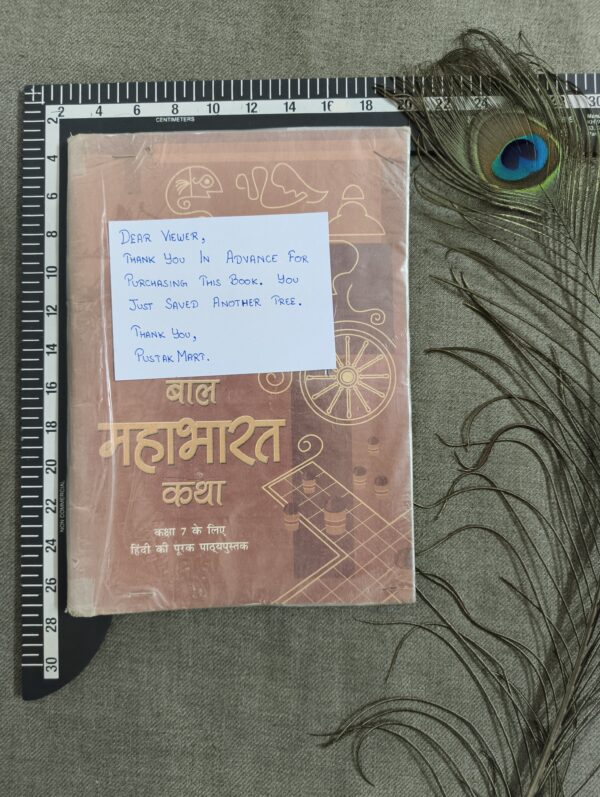 2 4 6 8 10 12 14 16 18 20 22 24 30
CENTIMETERS
2
4
6
8
10
12
14
16
18
20
22
24
26
28
30
NON COMMERCIAL
DEAR VIEWER,
THANK YOU IN ADVANCE FOR
PURCHASING THIS BOOK. YOU
JUST SAVED ANOTHER TREE.
THANK YOU,
PUSTAK MART.
बाल
महाभारत
कथा
कक्षा 7 के लिए
हिंदी की पूरक पाठ्यपुस्तक